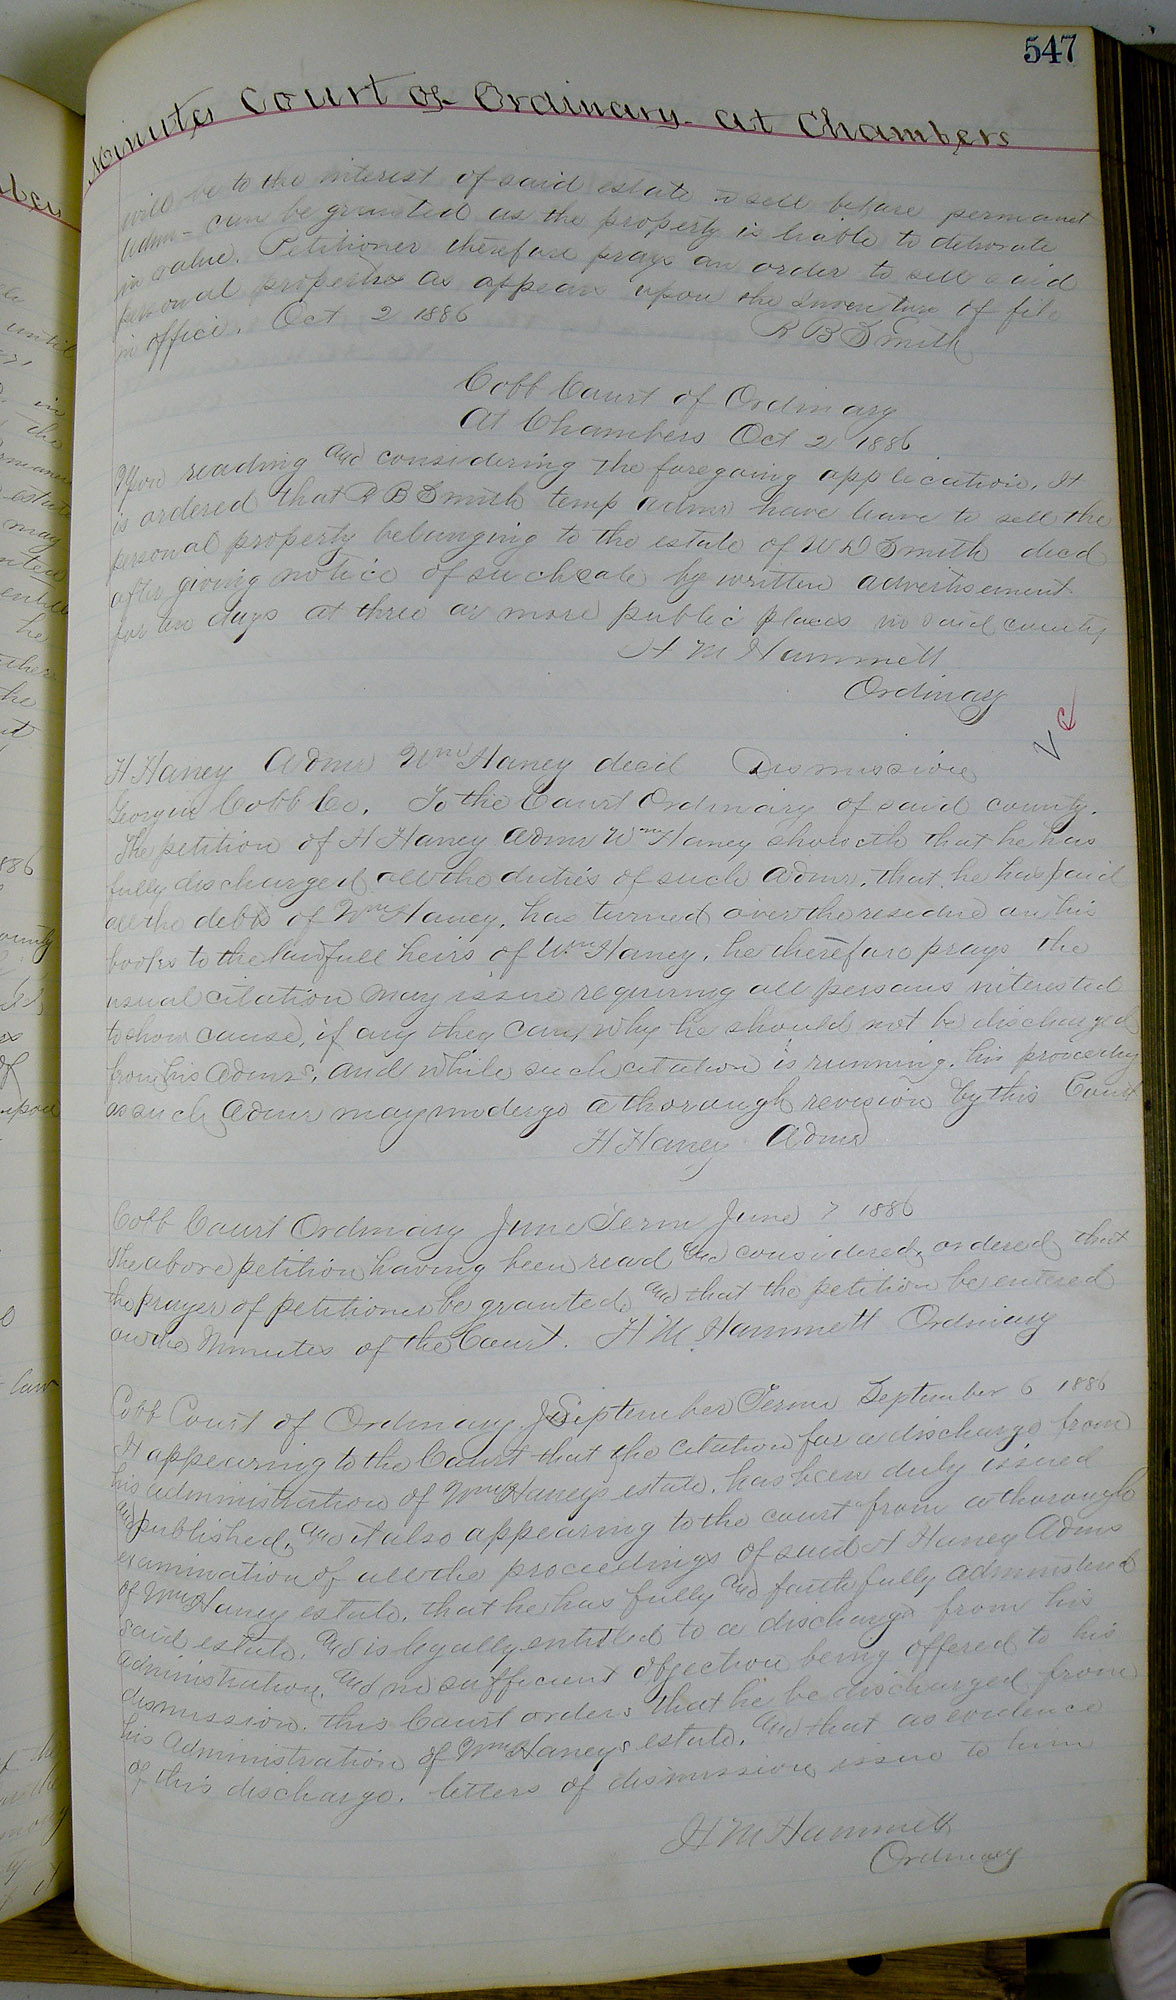 547
Minutes Court of Ordinary at Chambers
will be to the interest of said estate to sell before permanent
Admr can be granted as the property is liable to detiorate
in value. Petitioner therefore prays an order to sell said
personal property as appears upon the Inventory of file
in office. Oct 2 1886
R B Smith
Cobb Court of Ordinary
At Chambers Oct 2 1886
Upon reading and considering the foregoing application. It
is ordered that R B Smith temp admr have leave to sell the
personal property belonging to the estate of W D Smith decd
after giving notice of such sale by written advertisement
for ten days at three or more public places in said county
H M Hammett
Ordinary
H Haney Admr Wm Haney decd Dismission
Georgia Cobb Co. To the Court Ordinary of said county.
The petition of H Haney Admr Wm Haney showeth that he has
fully discharged all the duties of such Admr. that he has paid
all the debts of Wm Haney, has turned over the residue on his
books to the lawfull heirs of Wm Haney, he therefore prays the
usual citation may issue requiring all persons interested
to show cause, if any they can, why he should not be discharged
from his Admr, and while such citation is running, his
as such Admr may undergo a thorough revision by this Court
H Haney Admr
Cobb Court Ordinary June Term June 7 1886
The above petition having been read and considered, ordered that
the prayer of petitioner be granted, and that the petition be entered
on the Minutes of the Court. H M Hammett Ordinary
Cobb Court of Ordinary September Term September 6 1886
It appearing to the Court that the citation for a discharge from
his administration of Wm Haneys estate, has been duly issued
and published, and it also appearing to the court from a thorough
examination of all the proceedings of said H Haney Admr
of Wm Haney estate, that he has fully and faithfully administered
said estate, and is legally entitled to a discharge from his
administration, and no sufficient objection being offered to his
dismission. this Court orders that he be discharged from
his Administration of Wm Haneys estate, and that as evidence
of this discharge, letters of dismission issue to him
H M Hammett
Ordinary